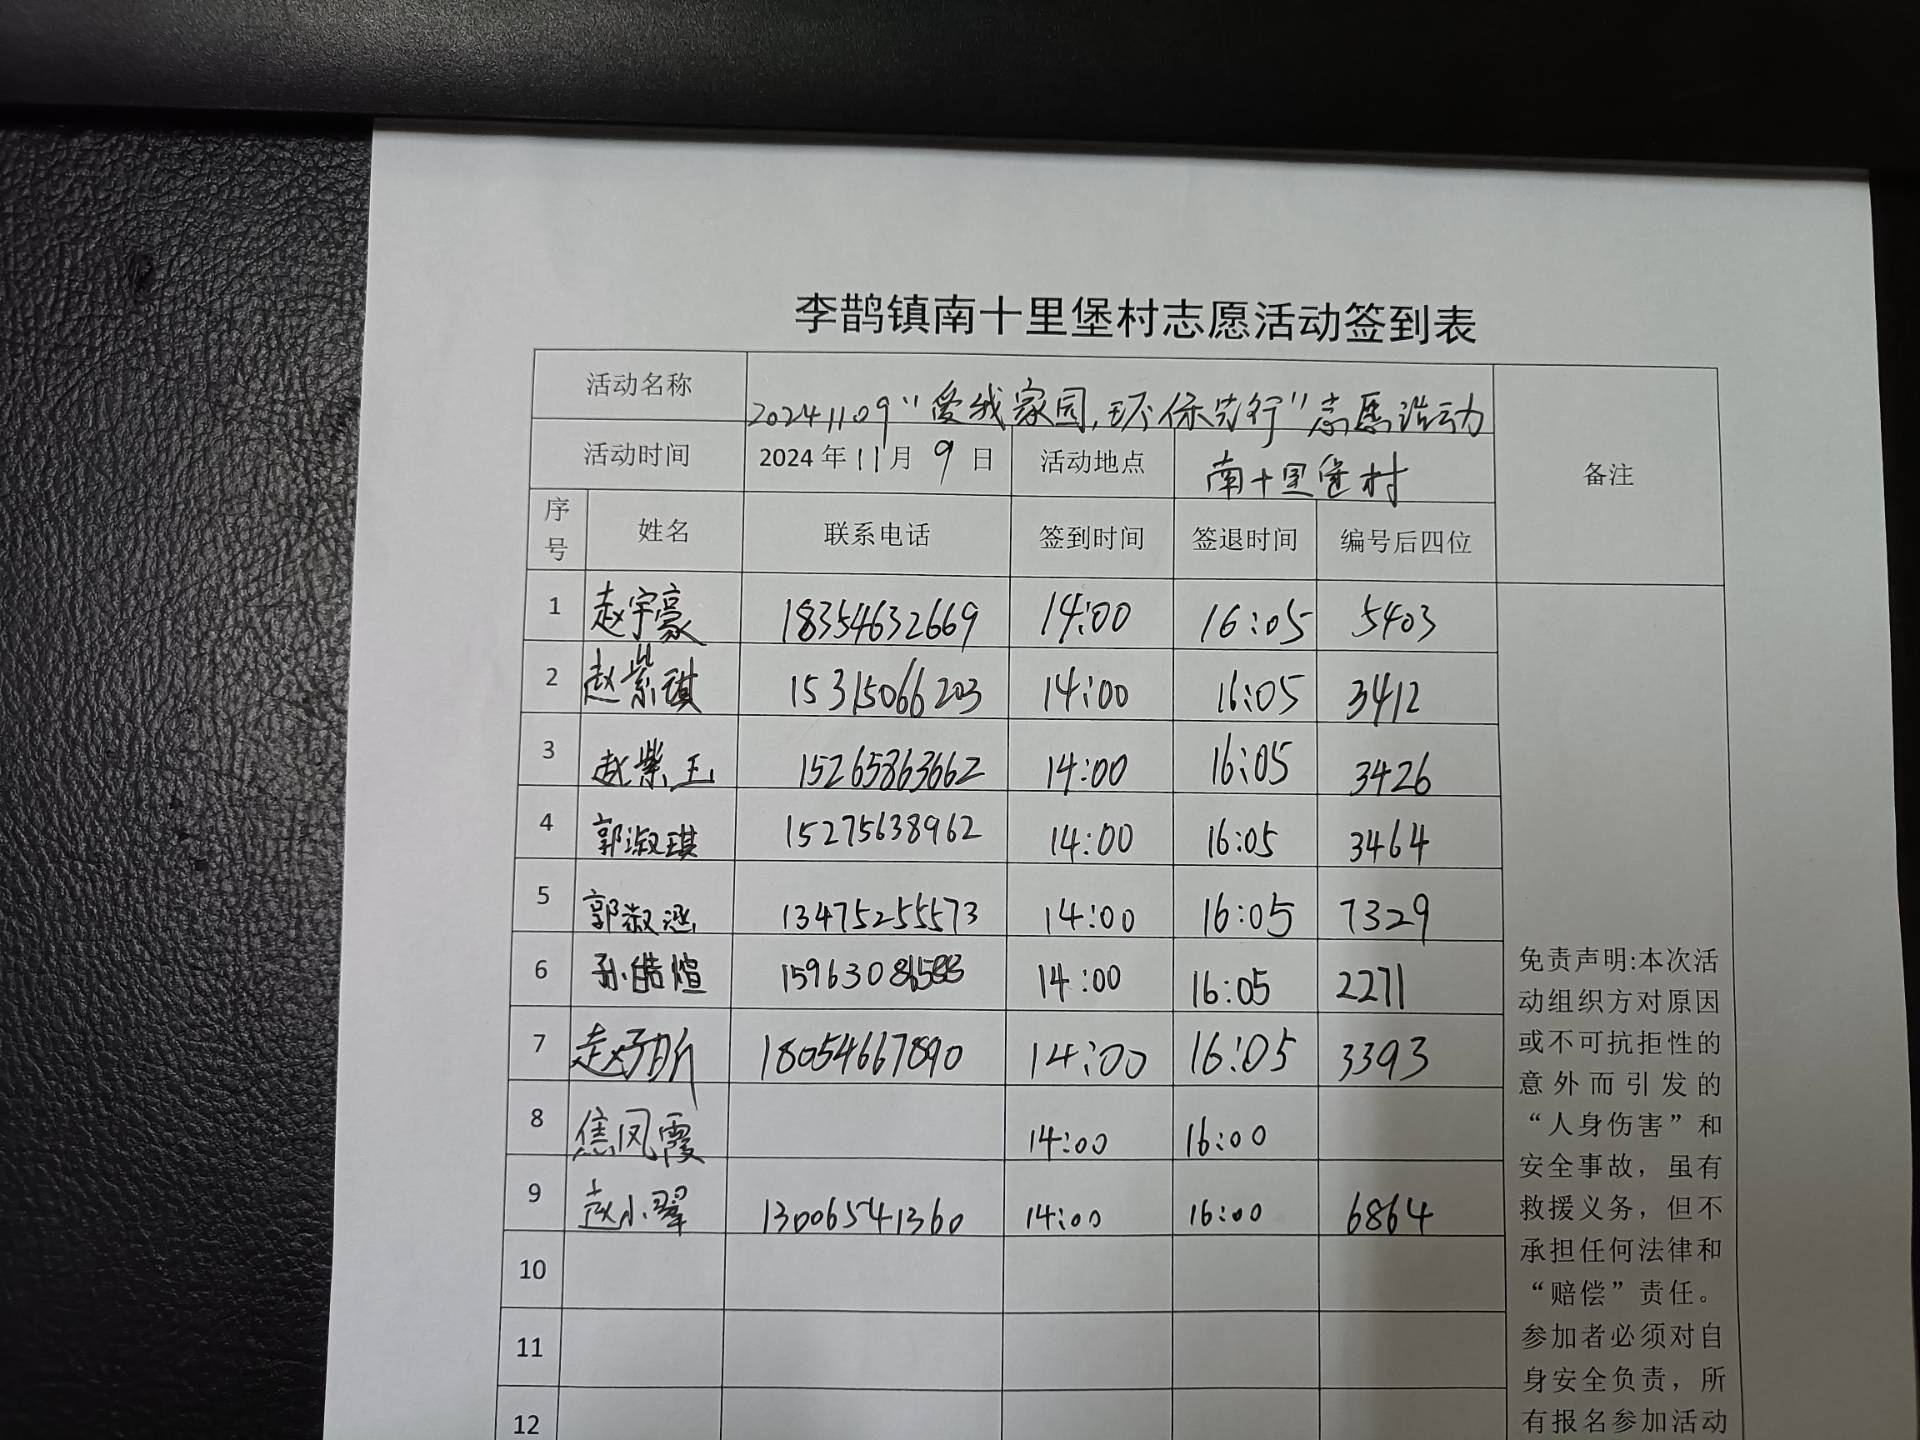 李鹊镇南十里堡村志愿活动签到表
活动名称 20241109“爱我家园，环保先行”志愿活动 备注
活动时间 2024年11月9日 活动地点 南十里堡村
序号 姓名 联系电话 签到时间 签退时间 编号后四位
1 赵宇豪 18354632669 14:00 16:05 5403
2 赵紫琪 15315066203 14:00 16:05 3412
3 赵紫玉 15265863662 14:00 16:05 3426
4 郭淑琪 15275638962 14:00 16:05 3464
5 郭淑涵 13475255573 14:00 16:05 7329
6 孙皓煊 14:00 16:05 2271
7 18054667890 14:00 16:05 3393
8 焦凤霞 14:00 16:00
9 赵小翠 13006541360 14:00 16:00 6864
10
11
12
免责声明:本次活
动组织方对原因
或不可抗拒性的
意外而引发的
“人身伤害”和
安全事故，虽有
救援义务，但不
承担任何法律和
“赔偿”责任。
参加者必须对自
身安全负责，所
有报名参加活动